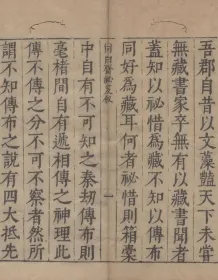 吾郡自昔以文藻豔天下未嘗
無藏書家卒無有以藏書聞者
蓋知以祕惜為藏不知以傳布
同好為藏耳何者祕惜則箱橐
一
中自有不可知之秦劫傳布則
毫楮間自有遞相傳之神理此
傳不傳之分不可不察者然所
謂不知傳布之說有四大抵先